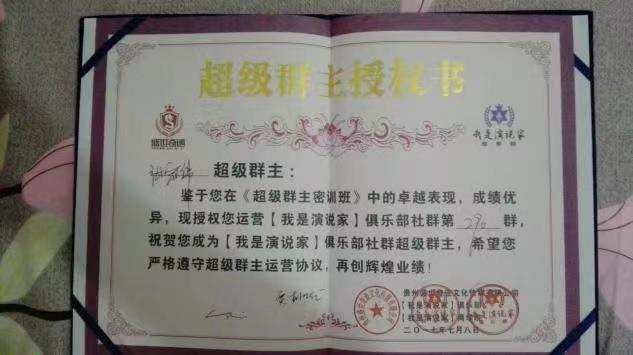 超级群主授权书
我是演说家
俱乐部
超级群主：
鉴于您在《超级群主密训班》中的卓越表现，成绩优
异，现授权您运营【我是演说家】俱乐部社群第290群，
祝贺您成为【我是演说家】俱乐部社群超级群主，希望您
严格遵守超级群主运营协议，再创辉煌业绩！
【我是演说家】俱乐部
【我是演说家】
二〇一七年七月八日